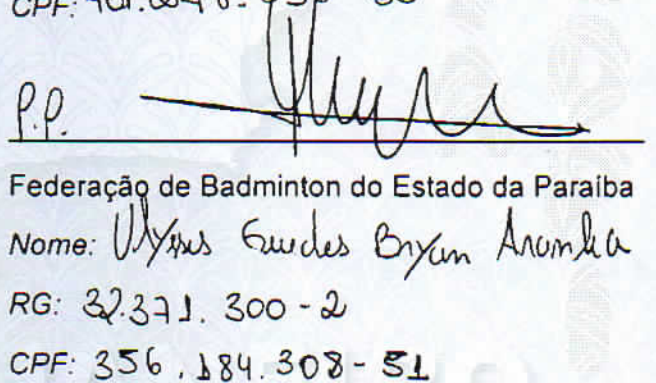 CPF:
P.P.
Federação de Badminton do Estado da Paraíba
Nome: Ulysses Guedes Bryan Aranha
RG: 32.371.300-2
CPF: 356.184.308-51